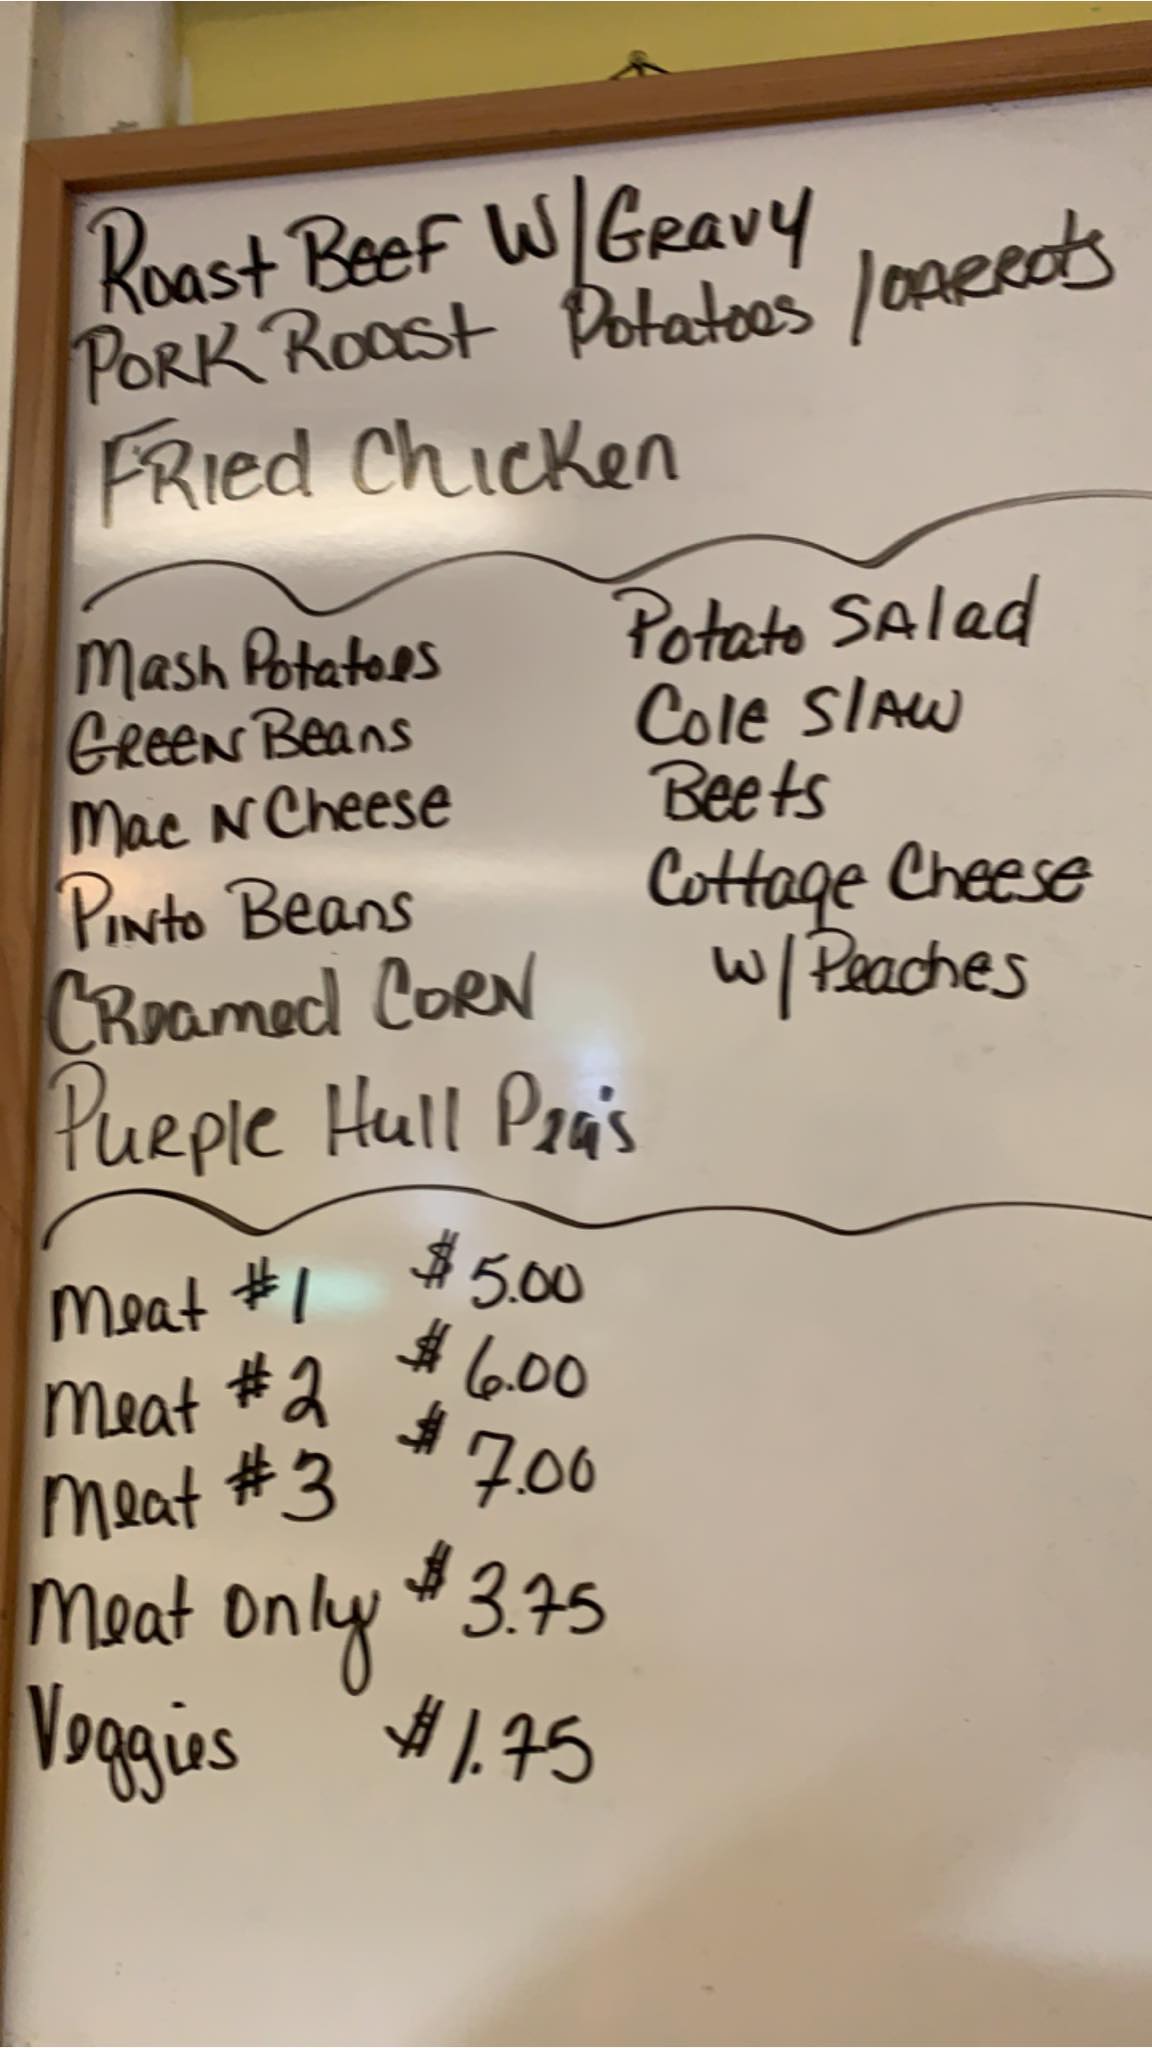 Roast Beef W/Gravy
Pork Roast Potatoes /carrots
Fried Chicken
Mash Potatoes
Green Beans
Mac N Cheese
Pinto Beans
Creamed Corn
Purple Hull Pea's
Potato Salad
Cole Slaw
Beets
Cottage Cheese
w/Peaches
Meat #1 $5.00
Meat #2 $6.00
Meat #3 $7.00
Meat only $3.75
Veggies $1.75